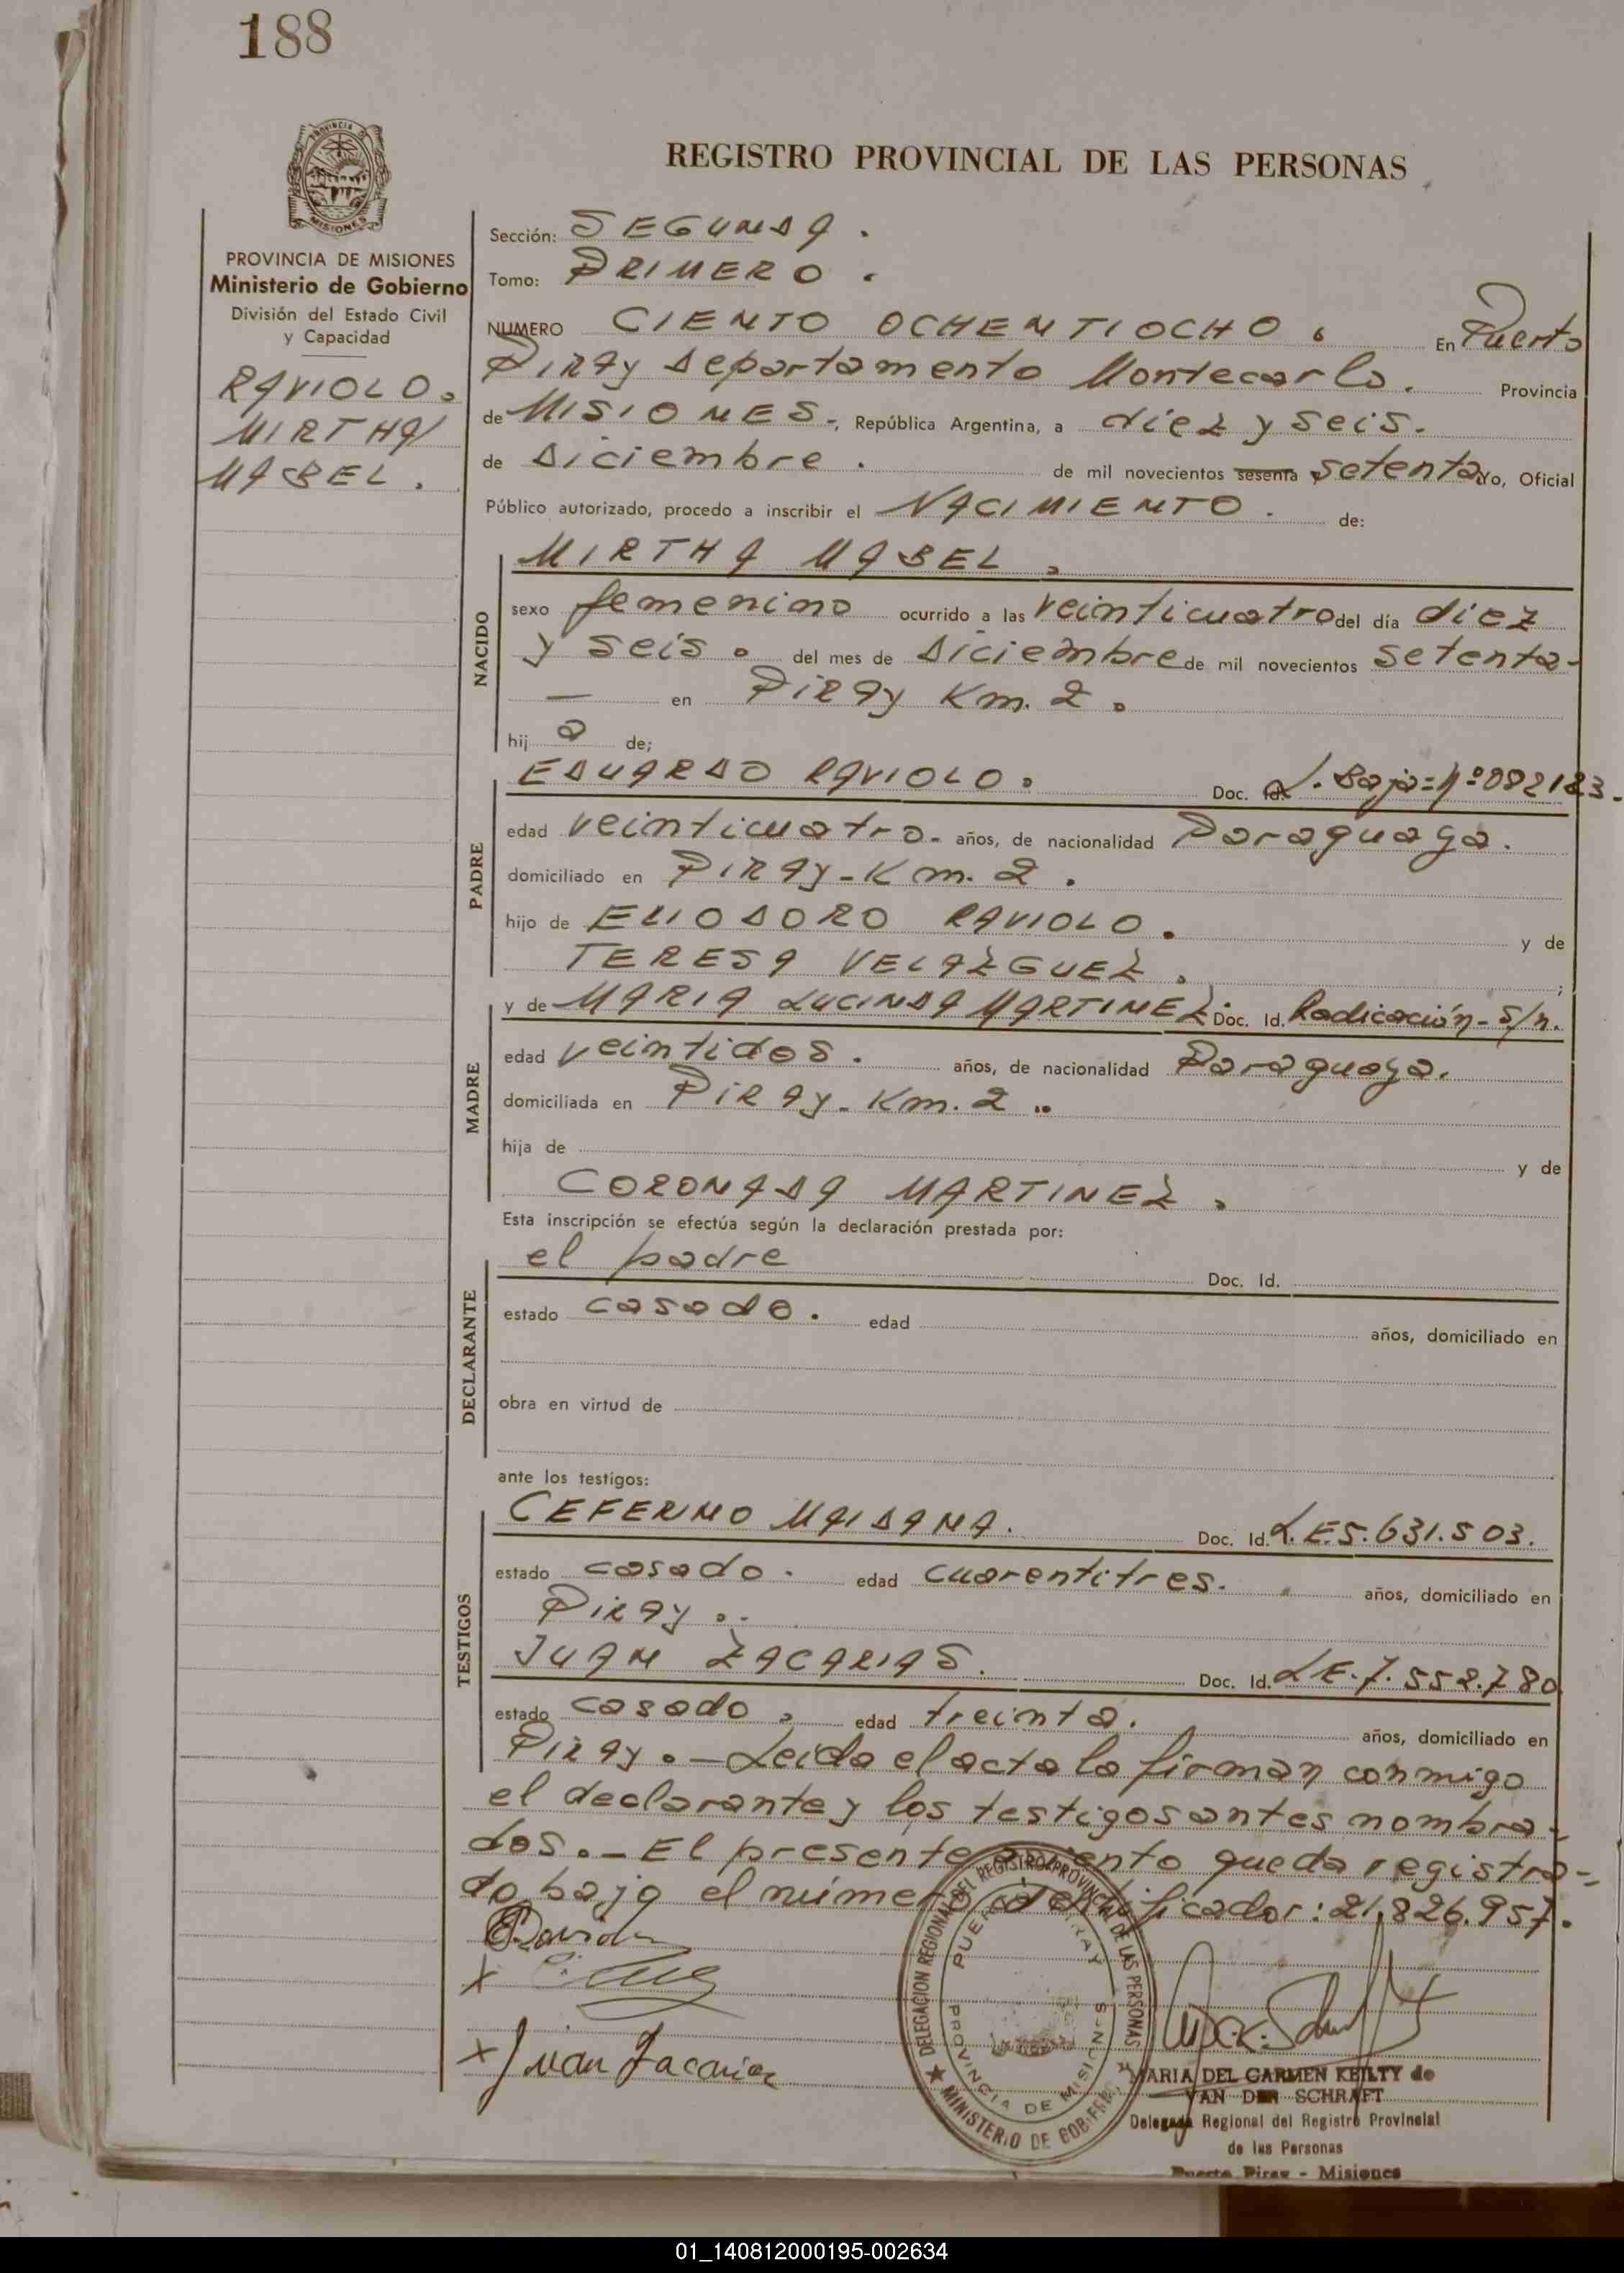 188
PROVINCIA DE
MISIONES
REGISTRO PROVINCIAL DE LAS PERSONAS
PROVINCIA DE MISIONES
Ministerio de Gobierno
División del Estado Civil
y Capacidad
RAVIOLO.
MIRTHA
MABEL.
Sección: SEGUNDA.
Tomo: PRIMERO.
NUMERO CIENTO OCHENTIOCHO. En Puerto
PIRAY Departamento Montecarlo. Provincia
de MISIONES-, República Argentina, a diez y seis.
de Diciembre. de mil novecientos sesenta setenta Yo, Oficial
Público autorizado, procedo a inscribir el NACIMIENTO. de:
NACIDO
MIRTHA MABEL.
sexo femenino ocurrido a las veinticuatro del día diez
y seis. del mes de Diciembre de mil novecientos setenta-
— en PIRAY Km. 2.
hij a de;
PADRE
EDUARDO RAVIOLO. Doc. Id. L. Baja=Nº 082183.
edad veinticuatro- años, de nacionalidad Paraguaya.
domiciliado en PIRAY-Km. 2.
hijo de ELIODORO RAVIOLO. y de
TERESA VELAZGUEZ. ;
MADRE
y de MARIA LUCINDA MARTINEZ. Doc. Id. Radicación-S/n.
edad veintidos. años, de nacionalidad Paraguaya.
domiciliada en PIRAY-Km. 2..
hija de y de
CORONADA MARTINEZ.
Esta inscripción se efectúa según la declaración prestada por:
DECLARANTE
el padre Doc. Id.
estado casado. edad años, domiciliado en
obra en virtud de
ante los testigos:
TESTIGOS
CEFERINO MAIDANA. Doc. Id. L.E.5.631.503.
estado casado. edad cuarentitres. años, domiciliado en
PIRAY..
JUAN ZACARIAS. Doc. Id. L.E.7.552.780
estado casado, edad treinta. años, domiciliado en
PIRAY.-Leida el acta la firman conmigo
el declarante y los testigos antes nombra-
dos.-El presente asiento queda registra-
do bajo el número identificador: 21.826.957.
x
x Juan Zacarias
DELEGACION REGIONAL DEL REGISTRO PROVINCIAL DE LAS PERSONAS
MINISTERIO DE GOBIERNO
PUERTO PIRAY
PROVINCIA DE MISIONES
MARIA DEL CARMEN KEILTY de
VAN DER SCHRAFT
Delegada Regional del Registro Provincial
de las Personas
Puerto Piray - Misiones
01_140812000195-002634